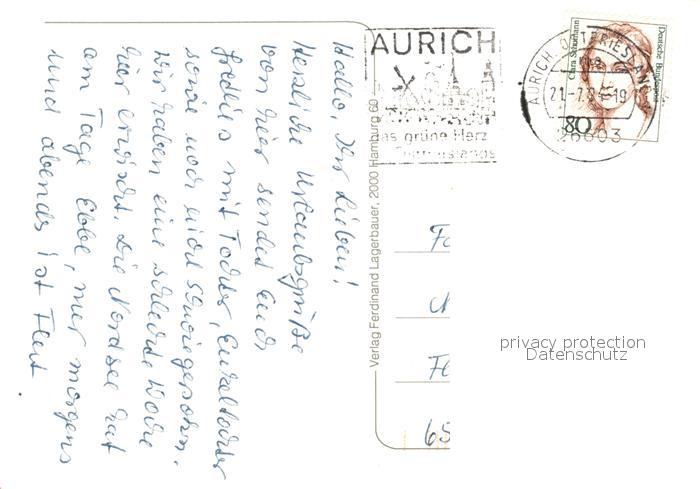 Hallo, Ihr Lieben!
Herzliche Urlaubsgrüße
von hier sendet Euch
mit Tochter, Enkeltochter
sowie noch nicht Schwiegersohn.
Wir haben eine schlechte Woche
hier erwischt. Die Nordsee hat
am Tage Ebbe, nur morgens
und abends ist Flut.
Verlag Ferdinand Lagerbauer, 2000 Hamburg 60
AURICH
das grüne Herz
Ostfrieslands
AURICH, OSTFRIESLAND
21.-7.
-19
26603
Clara Schumann
Deutsche Bundespost
80
65
privacy protection
Datenschutz